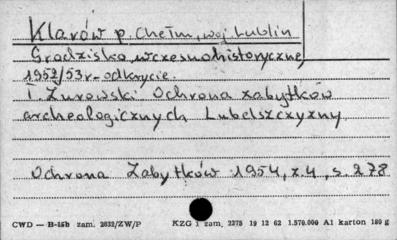 Klarów p. Chełm, woj. Lublin
Grodzisko wczesnohistoryczne,
1952/53 r - odkrycie.
T. Żurowski Ochrona zabytków
archeologicznych Lubelszczyzny.
Ochrona Zabytków 1954, z.4, s. 278
CWD — B-15b zam. 2632/ZW/P KZG 1 zam. 2275 19 12 62 1.570.000 A1 karton 180 g